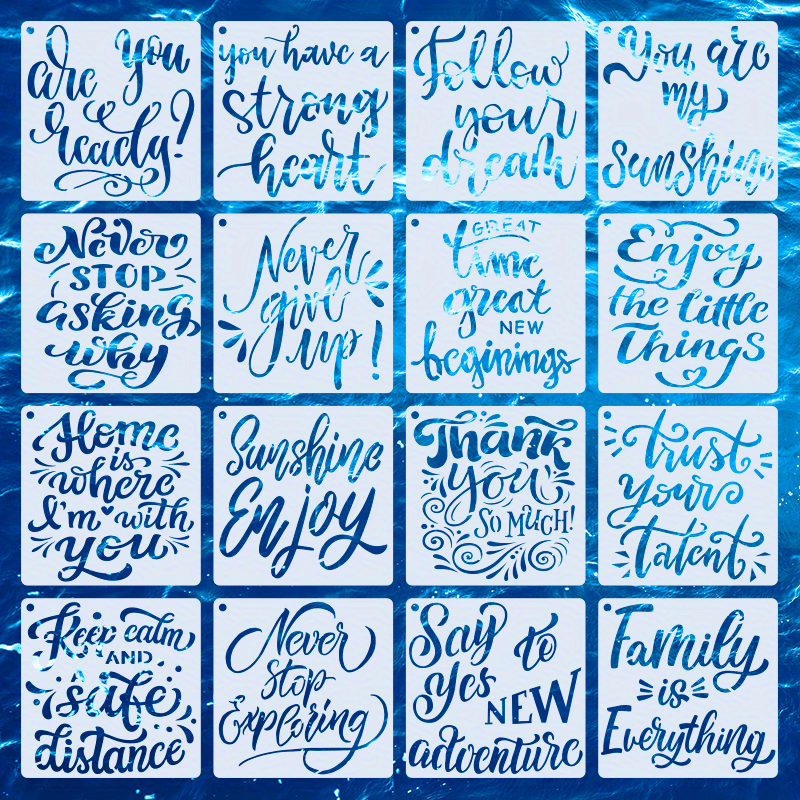 are you
ready?
you have a
strong
heart
Follow
your
dream
You are
my
sunshine
Never
STOP
asking
why
Never
give
up!
GREAT
time
great
NEW
beginings
Enjoy
the little
Things
Home
is
where
I'm with
you
Sunshine
Enjoy
Thank
you
SO MUCH!
trust
your
talent
Keep calm
AND
safe
distance
Never
stop
Exploring
Say to
yes
NEW
adventure
Family
is
Everything